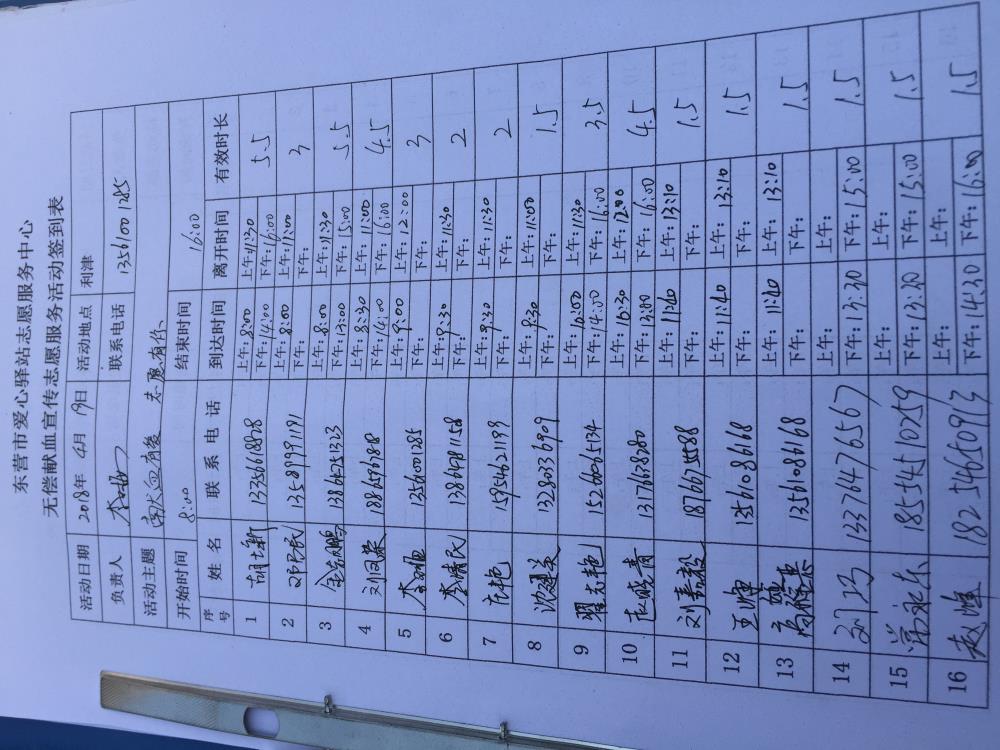 东营市爱心驿站志愿服务中心
无偿献血宣传志愿服务活动签到表
活动日期 2018年 4月 19日 活动地点 利津
负责人 联系电话 13561001285
活动主题 献血有我 志愿有你
开始时间 8:00 结束时间 16:00
序号 姓 名 联 系 电 话 到达时间 离开时间 有效时长
1 胡士新 上午: 8:00 下午: 14:00 上午: 11:30 下午: 16:00 5.5
2 13589999119 上午: 8:00 下午: 上午: 11:00 下午: 3
3 13864751323 上午: 8:00 下午: 13:00 上午: 11:30 下午: 15:00 5.5
4 上午: 8:30 下午: 14:00 上午: 11:00 下午: 16:00 4.5
5 13561001285 上午: 9:00 下午: 上午: 12:00 下午: 3
6 李清民 上午: 9:30 下午: 上午: 11:30 下午: 2
7 15954621199 上午: 9:30 下午: 上午: 11:30 下午: 2
8 上午: 9:30 下午: 上午: 11:00 下午: 1.5
9 翟志艳 15266065134 上午: 10:00 下午: 14:00 上午: 11:30 下午: 16:00 3.5
10 赵晓青 13176638080 上午: 10:30 下午: 13:00 上午: 12:00 下午: 16:00 4.5
11 上午: 11:40 下午: 上午: 13:10 下午: 1.5
12 王坤 13561086168 上午: 11:40 下午: 上午: 13:10 下午: 1.5
13 13561086168 上午: 11:40 下午: 上午: 13:10 下午: 1.5
14 刘巧 13376476567 上午: 下午: 13:30 上午: 下午: 15:00 1.5
15 常永乐 18554510259 上午: 下午: 13:30 上午: 下午: 15:00 1.5
16 赵峰 18254650913 上午: 下午: 14:30 上午: 下午: 16:00 1.5